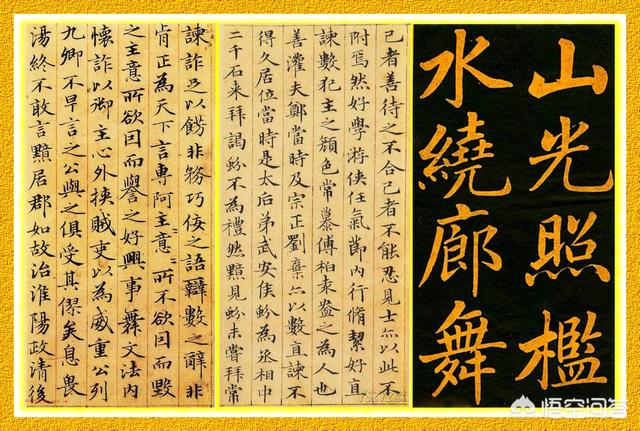 山光照檻
水繞廊舞
己者善待之不合己者不能忍見士亦以此不
附焉然好學游俠任氣節內行脩絜好直
諫數犯主之顏色常慕傅柏袁盎之為人也
善灌夫鄭當時及宗正劉棄亦以數直諫不
得久居位當時是太后弟武安侯蚡為丞相中
二千石来拜謁蚡不為禮然黯見蚡未嘗拜常
諫詐足以餝非務巧佞之語辯數之辭非
肯正為天下言專阿主意所不欲因而毀
之主意所欲因而譽之好興事舞文法內
懷詐以御主心外挾賊吏以為威重公列
九卿不早言之公與之俱受其僇矣息畏
湯終不敢言黯居郡如故治淮陽政清後
悟空问答